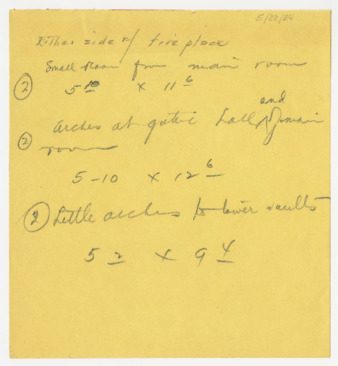 5/22/24
Either side of fire place
Small room from main room
② 5 10 x 11 6
and
② arches at gothic hall & main
room
5-10 x 12 6
② Little arches to lower vaults
5 2 x 9 4